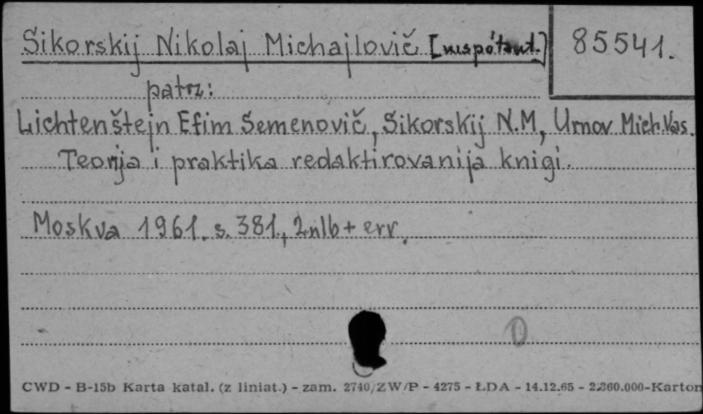 Sikorskij Nikolaj Michajlovič [współaut.] 85541.
patrz:
Lichtenštejn Efim Semenovič, Sikorskij N.M, Urnov Mich.Vas.
Teorija i praktika redaktirovanija knigi.
Moskva 1961. s. 381, 2nlb + err.
0
CWD - B-15b Karta katal. (z liniat.) - zam. 2740/ZW/P - 4275 - ŁDA - 14.12.65 - 2.360.000-Karton